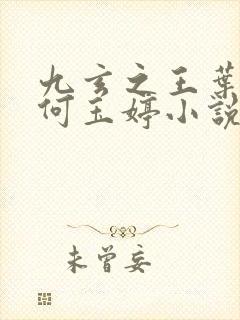 九玄之王葉
何玉婷小說
未曾妄